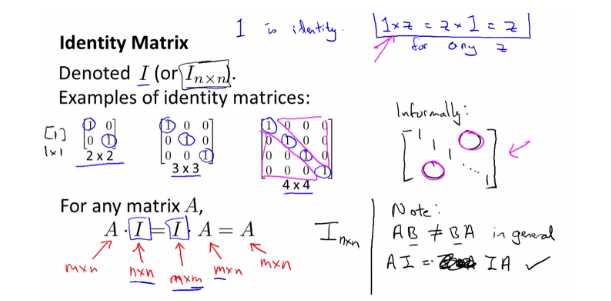 1 is identity.
1×z = z×1 = z
for any z
Identity Matrix
Denoted I (or I_{n×n}).
Examples of identity matrices:
[1]
1x1
1 0
0 1
2 x 2
1 0 0
0 1 0
0 0 1
3 x 3
1 0 0 0
0 1 0 0
0 0 1 0
0 0 0 1
4 x 4
Informally:
1
1
1
...
1
For any matrix A,
A · I = I · A = A
m×n
n×n
m×m
m×n
m×n
I_{n×n}
Note:
AB ≠ BA in general
AI = IA ✓